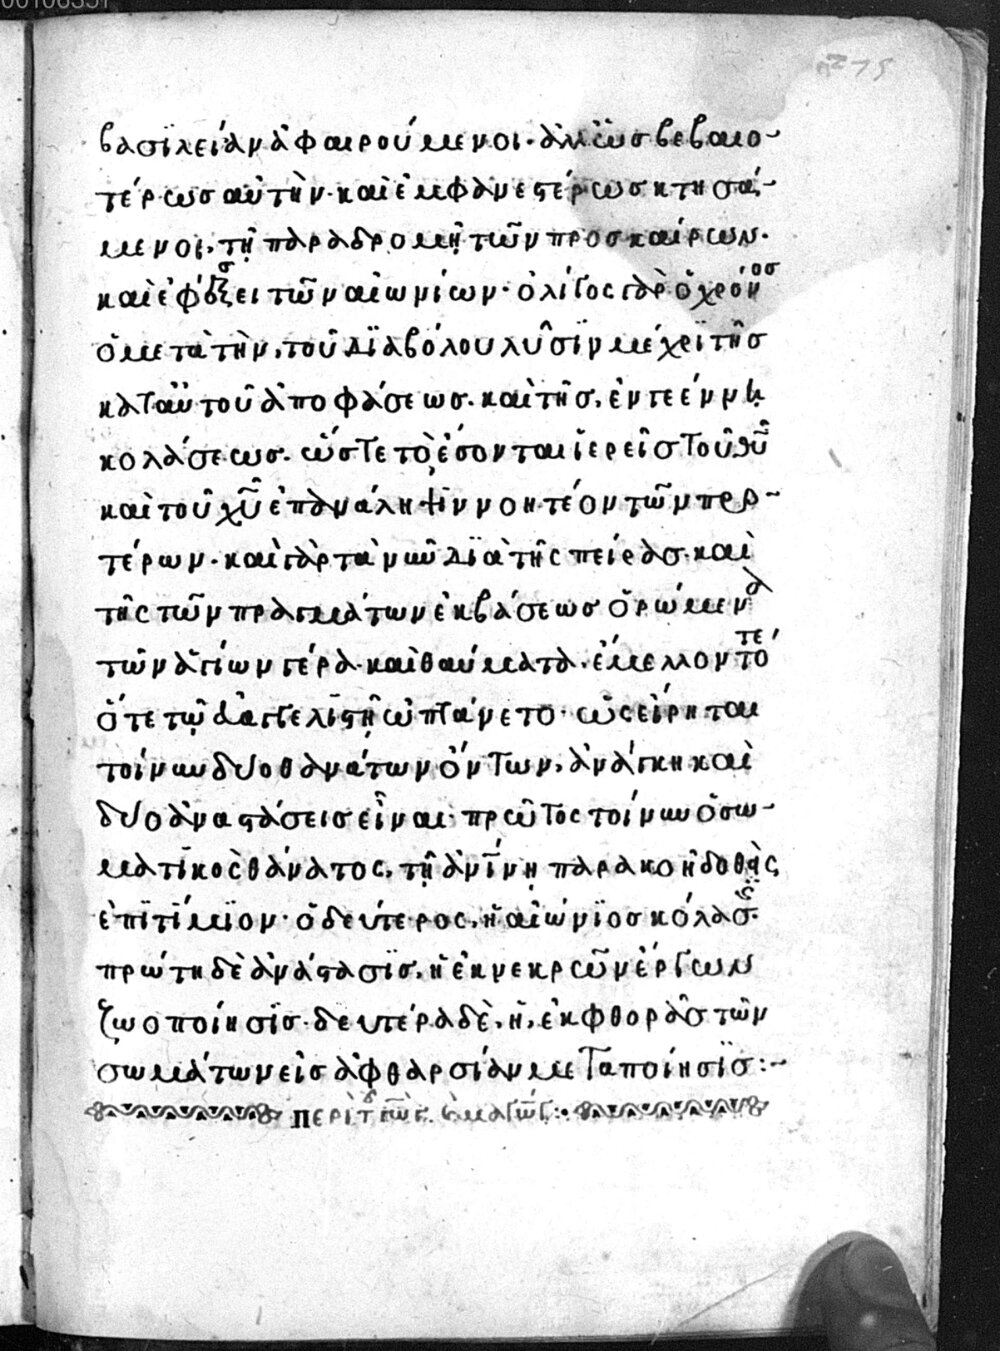 βασϊλείαν ἀφαιρούμενοι· ἀλλ' ὡσ βεβαιο-
τέρωσ αὐτὴν· καὶ ἐμφανεστέρωσ κτησά-
μενοι, τῆ παραδρομῆ τῶν προσκαίρων.
καὶ ἐφέξει τῶν αἰωνίων· ὀλίγος γὰρ ὁ χρόνοσ
ὁ μετὰ τὴν, τοῦ διαβόλου λύσϊν μέχρϊ τῆσ
κατ' αὐτοῦ ἀποφάσεωσ. καὶ τῆσ, ἐν γεέννη
κολάσεωσ. ὥστε τὸ, ἔσονται ἱερεῖσ τοῦ θῦ
καὶ τοῦ χῦ ἐπανάληψϊν νοητέον τῶν προ-
τέρων. καὶ γὰρ τὰ νῦν διὰ τῆς πείρασ. καὶ
τῆς τῶν πραγμάτων ἐκβάσεωσ ὁρώμενα
τῶν ἁγίων γέρα· καὶ θαύματα, ἔμελλον τότε,
ὅτε τῶ εὐαγγελϊστῆ ὠπτάνετο· ὡς εἴρηται
τοίνυν δυο θανάτων ὄντων, ἀνάγκη καὶ
δυο ἀναστάσεισ εἶναι· πρῶτος τοίνυν ὁ σω-
ματϊκὸς θάνατος, τῆ ἀνίνη παρακοῆ δοθεὶς
ἐπϊτίμϊον· ὁ δεύτερος, ἡ αἰώνϊοσ κόλασϊσ
πρώτη δὲ ἀνάστασϊσ, ἡ ἐκ νεκρῶν ἔργων
ζωοποίησϊσ· δευτέρα δὲ, ἡ, ἐκ φθορᾶσ τῶν
σωμάτων εἰσ ἀφθαρσίαν μεταποίησϊσ:-